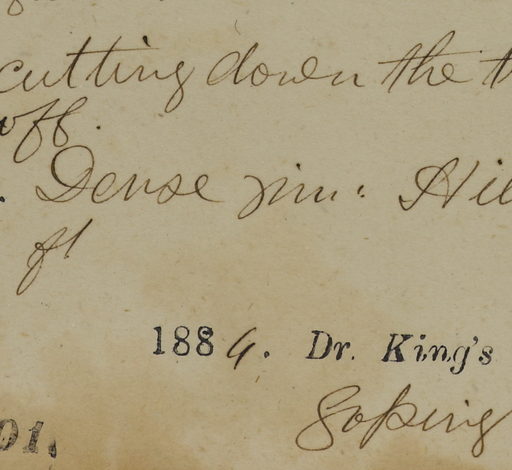 cutting down the t
off.
. Dense jim: Hil
ft
1889. Dr. King's
Goping
01.